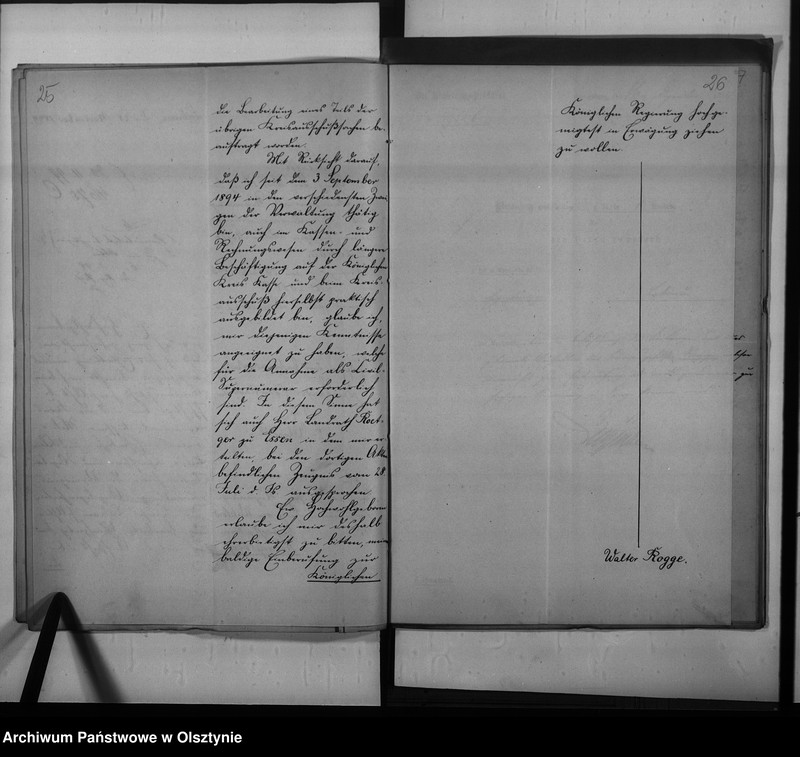 25
die Bearbeitung eines Teils der
übrigen Kreisausschußsachen be-
auftragt worden.
Mit Rücksicht darauf,
daß ich seit dem 3 September
1894 in den verschiedensten Zwei
gen der Verwaltung thätig
bin, auch im Kassen- und
Rechnungswesen durch längere
Beschäftigung auf der Königlichen
Kreis Kasse und beim Kreis-
ausschuß hierselbst praktisch
ausgebildet bin, glaube ich,
mir diejenigen Kenntnisse
angeeignet zu haben, welche
für die Annahme als Civil-
Supernumerar erforderlich
sind. In diesem Sinne hat
sich auch Herr Landrath Roet-
ger zu Essen in dem mir er
teilten, bei den dortigen Akten
befindlichen Zeugnis vom 28.
Juli d. Js ausgesprochen
Ew. Hochwohlgeboren
erlaube ich mir deshalb
ehrerbietigst zu bitten, meine
baldige Einberufung zur
Königlichen
26
Königlichen Regierung hochge
neigtest in Erwägung ziehen
zu wollen.
Walter Rogge.
Archiwum Państwowe w Olsztynie